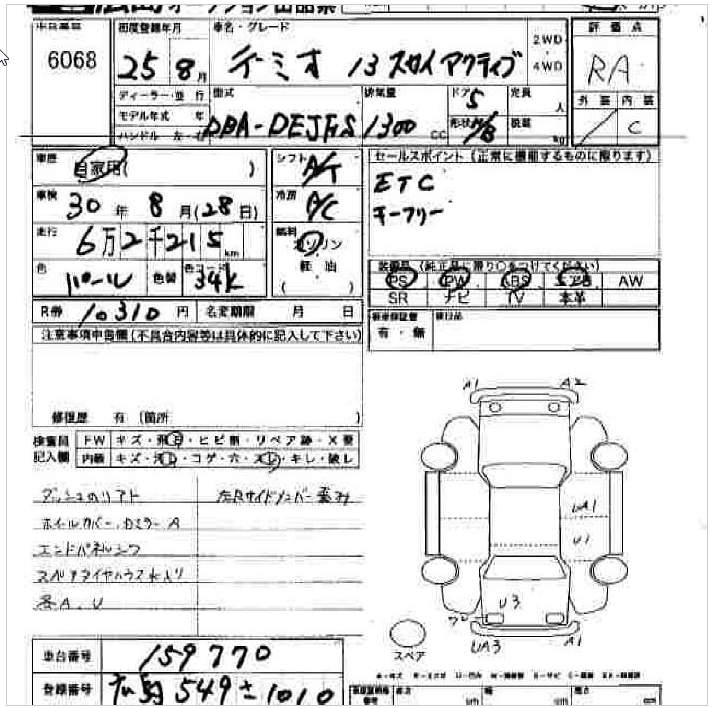 オークション出品票
6068
初度登録年月
25 8月
車名・グレード
デーミオ 13 スカイアクティブ
2WD
4WD
評価点
RA
外装 内装
C
ディーラー・並行
モデル年式 年
ハンドル 左・右
型式
DBA-DEJFS
排気量
1300 CC
ドア 5
形状 H/B
定員 人
kg
車歴
自家用( )
シフト A/T
車検
30年 8月(28日)
冷房 A/C
走行
6万2千215km
燃料
ガソリン
軽油
( )
色 パール 色替 色コード 34K
R券 10310円 名変期限 月 日
セールスポイント(正常に機能するものに限ります)
ETC
キーフリー
装備品 (純正品に限り○をつけてください)
PS PW ABS エアB AW
SR ナビ TV 本革
新車保証書 有・無
注意事項申告欄(不具合内容等は具体的に記入して下さい)
修復歴 有 (箇所 )
検査員記入欄
FW キズ・飛石・ヒビ割・リペア跡・X要
内装 キズ・汚レ・コゲ・穴・スレ・キレ・破レ
ダッシュのリアト
左Rサイドメンバー歪み
ホイルカバー、
A
エンドパネル
スペアタイヤハウス
各A、U
A1 A2
UA1
U1
U3
UA3 A1
スペア
車台番号 159770
登録番号 549 さ 1010
高さ cm